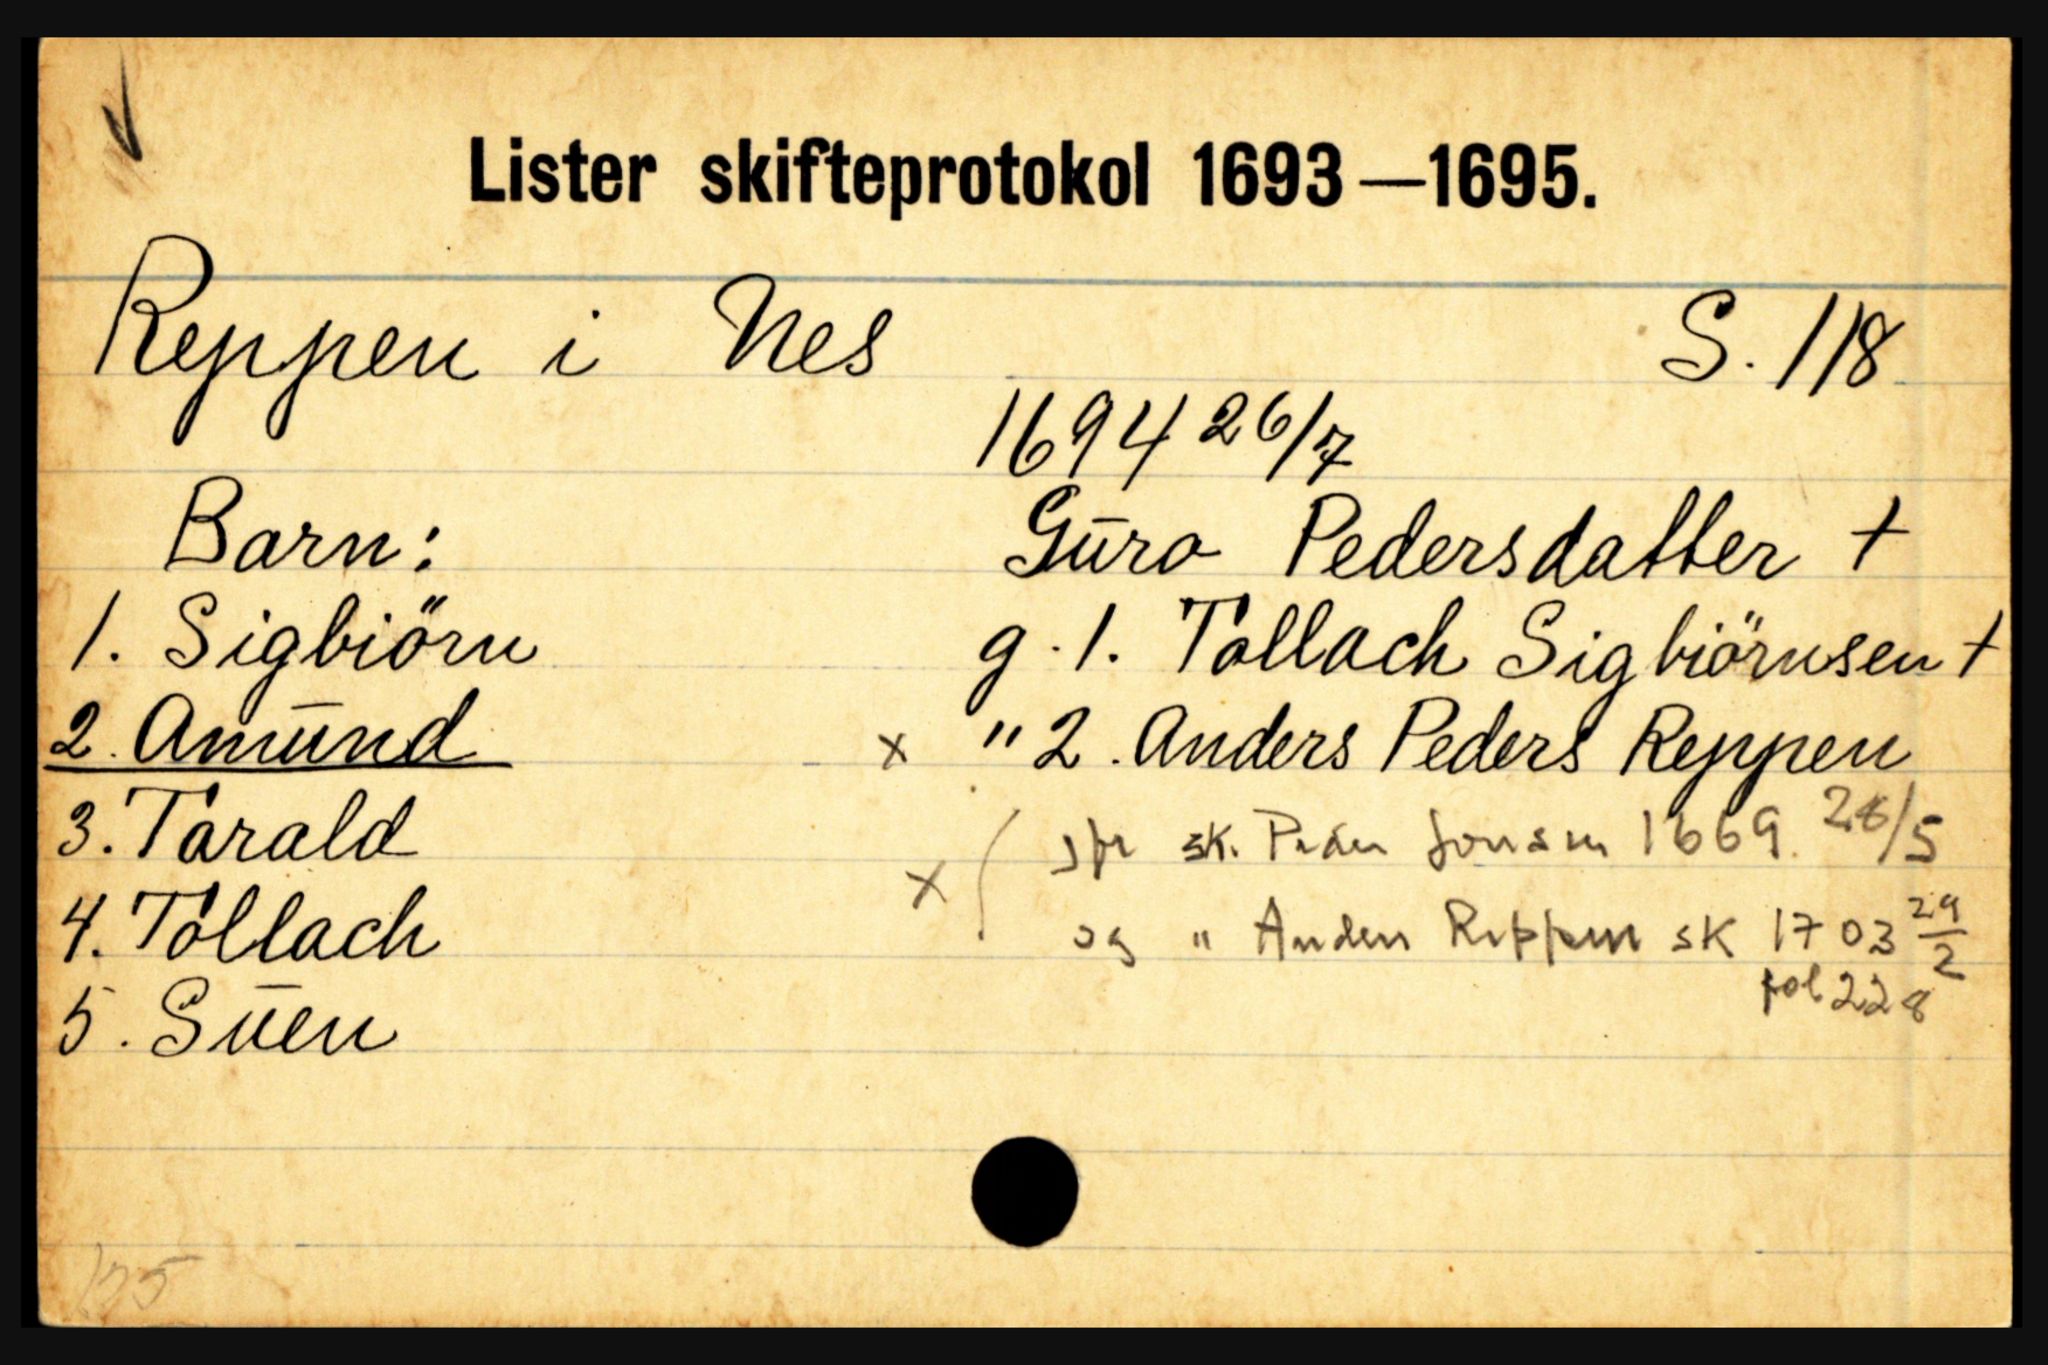 Lister skifteprotokol 1693—1695.
Reppen i Nes S. 118
1694 26/7
Barn: Gūro Pedersdatter †
1. Sigbiörn g. 1. Tollach Sigbiörnsen †
2. Amūnd x " 2. Anders Peders Reppen
3. Tarald jfr sk. Peder Jonsen 1669 28/5
4. Tollach x og " Anders Reppen sk 1703 29/2
fol 228
5. Sūen
135